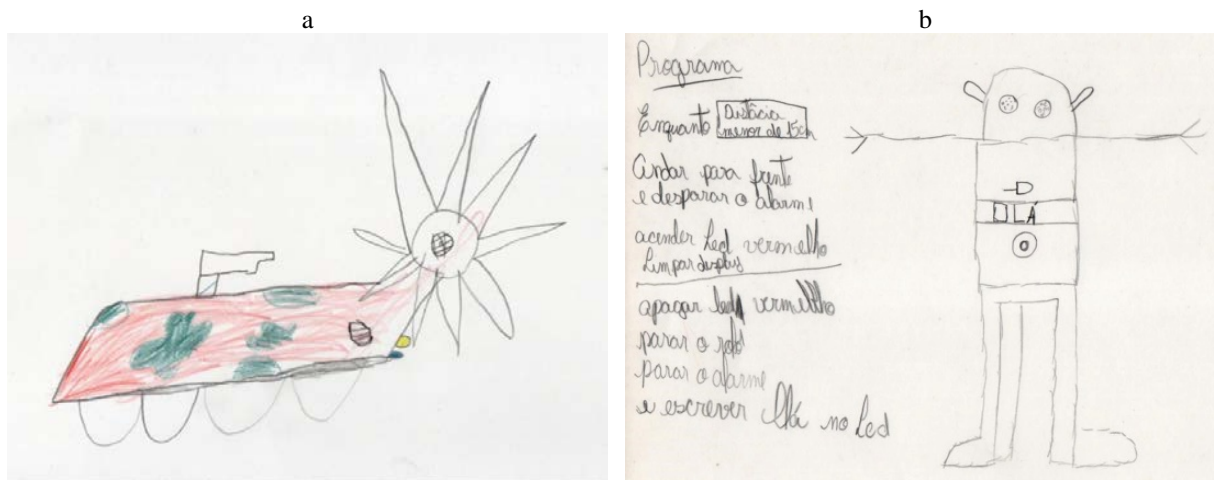 a
b
Programa
Enquanto Distâcia
menor de 15cm
andar para frente
e desparar o alarme
acender led vermelho
Limpar display
apagar led vermelho
parar o robô
parar o alarme
e escrever Olá no Led
OLÁ